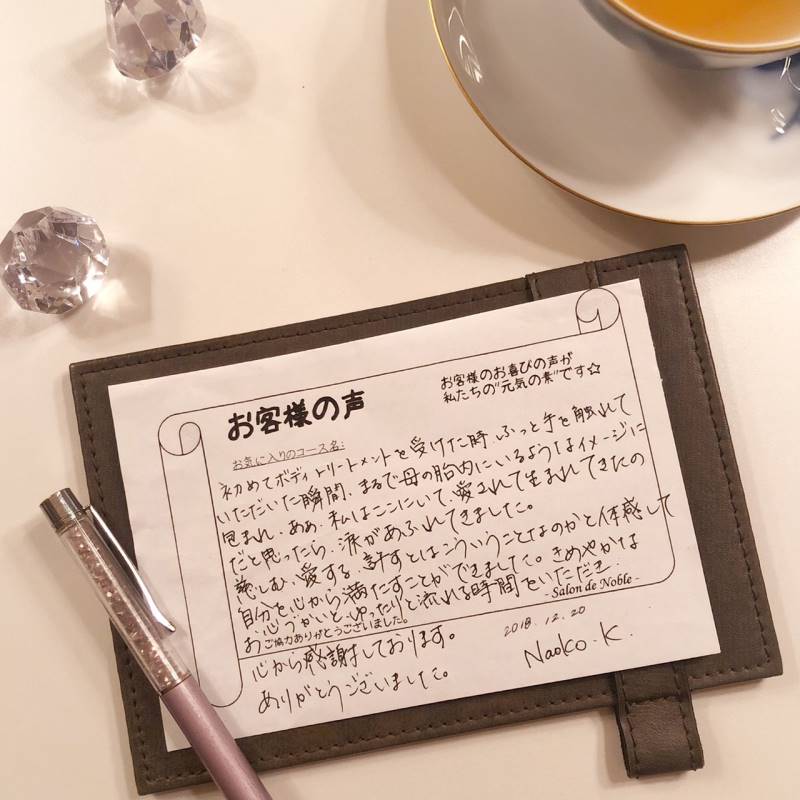 お客様の声
お客様のお喜びの声が
私たちの"元気の素"です☆
お気に入りのコース名:
初めてボディトリートメントを受けた時、ふっと手を触れて
いただいた瞬間、まるで母の胎内にいるようなイメージに
包まれ、ああ、私はここにいて、愛されて生まれてきたの
だと思ったら、涙があふれてきました。
慈しむ、愛する、許すとはこういうことなのかと体感して
自分を心から満たすことができました。きめやかな
お心づかいと、ゆったりと流れる時間をいただき
- Salon de Noble -
ご協力ありがとうございました。
心から感謝しております。
ありがとうございました。
2018.12.20
Naoko.K.